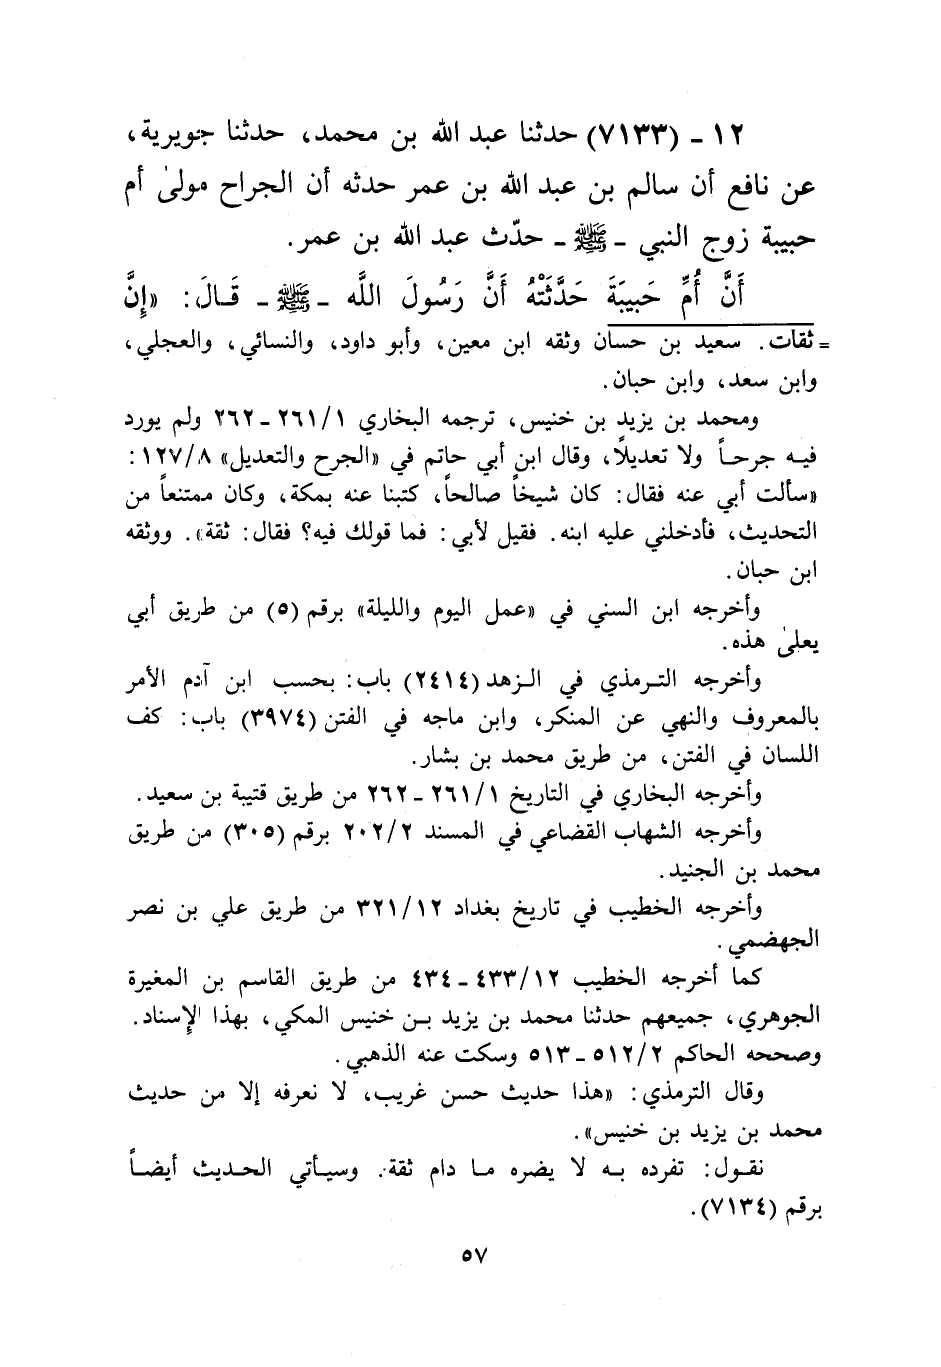 ١٢ ـ (٧١٣٣) حدثنا عبد الله بن محمد، حدثنا جويرية،
عن نافع أن سالم بن عبد الله بن عمر حدثه أن الجراح مولىٰ أم
حبيبة زوج النبي ـ ﷺ ـ حدّث عبد الله بن عمر.
أَنَّ أُمَّ حَبِيبَةَ حَدَّثَتْهُ أَنَّ رَسُولَ اللَّه ـ ﷺ ـ قَـالَ: «إِنَّ
= ثقات. سعيد بن حسان وثقه ابن معين، وأبو داود، والنسائي، والعجلي،
وابن سعد، وابن حبان.
ومحمد بن يزيد بن خنيس، ترجمه البخاري ٢٦١/١ ـ ٢٦٢ ولم يورد
فيـه جرحـاً ولا تعديلاً، وقال ابن أبي حاتم في «الجرح والتعديل» ١٢٧/٨:
«سألت أبي عنه فقال: كان شيخاً صالحاً، كتبنا عنه بمكة، وكان ممتنعاً من
التحديث، فأدخلني عليه ابنه. فقيل لأبي: فما قولك فيه؟ فقال: ثقة». ووثقه
ابن حبان.
وأخرجه ابن السني في «عمل اليوم والليلة» برقم (٥) من طريق أبي
يعلىٰ هذه.
وأخرجه التـرمذي في الـزهد (٢٤١٤) باب: بحسب ابن آدم الأمر
بالمعروف والنهي عن المنكر، وابن ماجه في الفتن (٣٩٧٤) باب: كف
اللسان في الفتن، من طريق محمد بن بشار.
وأخرجه البخاري في التاريخ ٢٦١/١ ـ ٢٦٢ من طريق قتيبة بن سعيد.
وأخرجه الشهاب القضاعي في المسند ٢٠٢/٢ برقم (٣٠٥) من طريق
محمد بن الجنيد.
وأخرجه الخطيب في تاريخ بغداد ٣٢١/١٢ من طريق علي بن نصر
الجهضمي.
كما أخرجه الخطيب ٤٣٣/١٢ ـ ٤٣٤ من طريق القاسم بن المغيرة
الجوهري، جميعهم حدثنا محمد بن يزيد بـن خنيس المكي، بهذا الإسناد.
وصححه الحاكم ٥١٢/٢ ـ ٥١٣ وسكت عنه الذهبي.
وقال الترمذي: «هذا حديث حسن غريب، لا نعرفه إلا من حديث
محمد بن يزيد بن خنيس».
نقـول: تفرده بـه لا يضره مـا دام ثقة. وسيـأتي الحديث أيضـاً
برقم (٧١٣٤).
٥٧